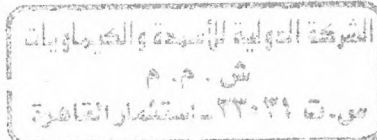 الشركة الدولية للأسمدة والكيماويات
ش . م . م
س . ت ٢٣٠٢١ - استثمار القاهرة